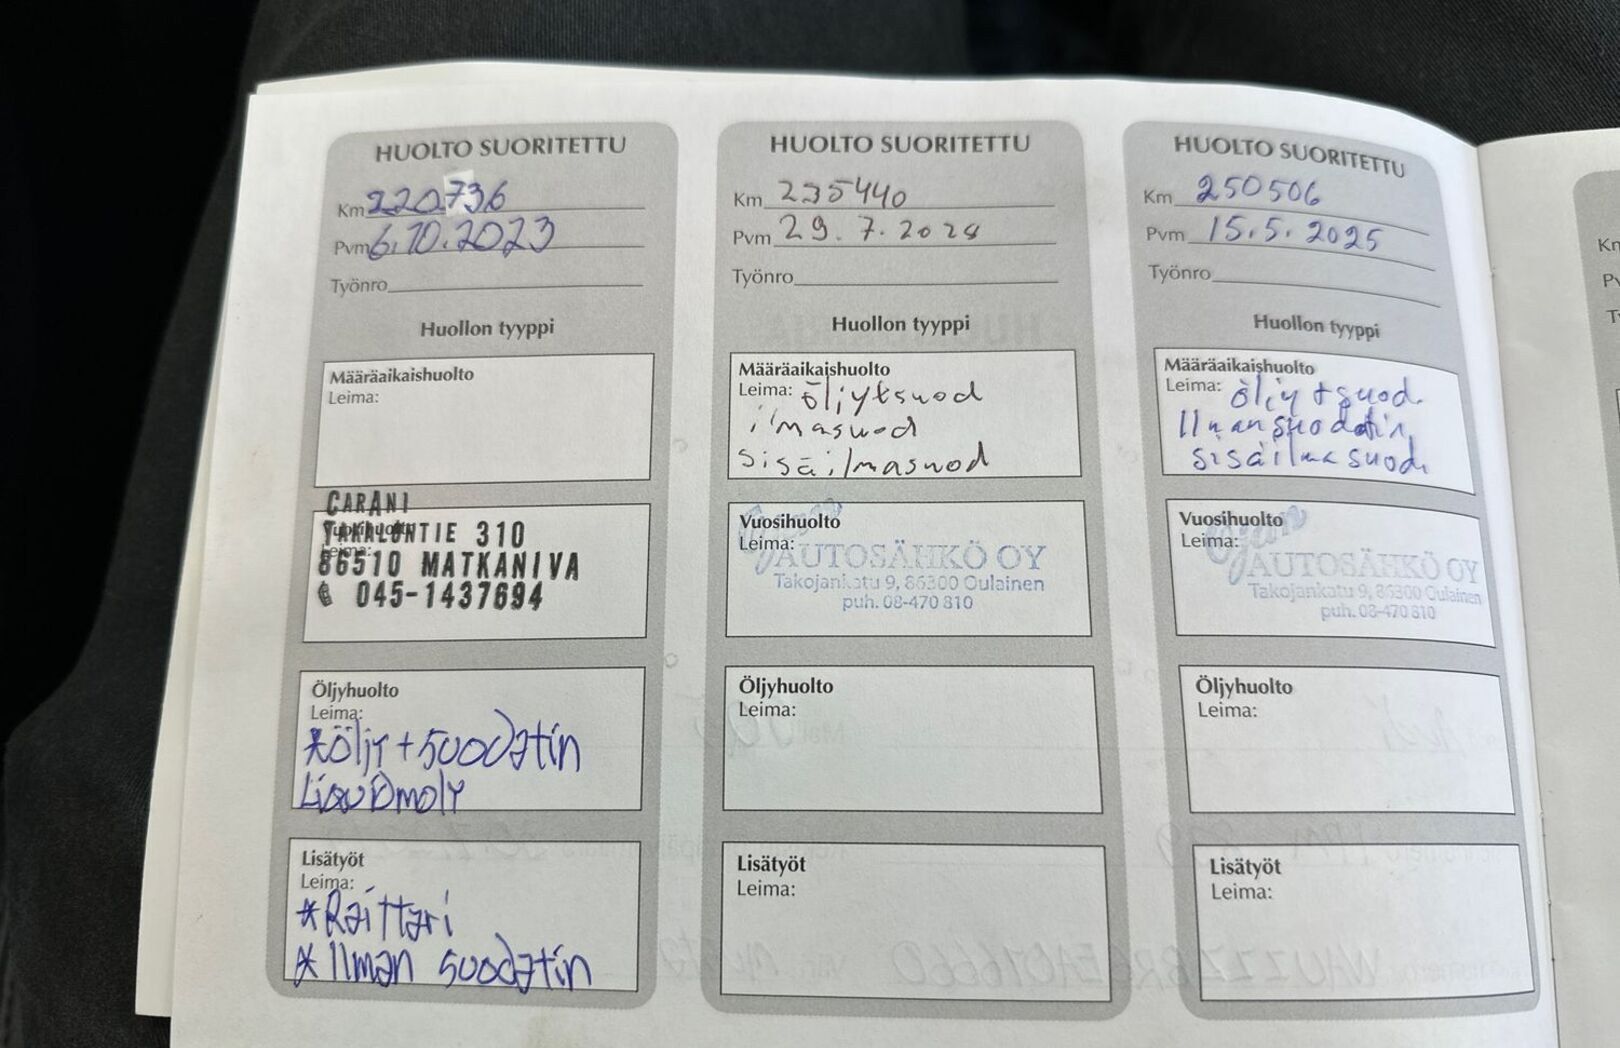 HUOLTO SUORITETTU
Km 220736
Pvm 6.10.2023
Työnro
Huollon tyyppi
Määräaikaishuolto
Leima:
CARANI
Vuosihuolto
TAKALONTIE 310
Leima:
86510 MATKANIVA
045-1437694
Öljyhuolto
Leima:
*Öljy + suodatin
Liquidmoly
Lisätyöt
Leima:
*Raittari
*Ilman suodatin
HUOLTO SUORITETTU
Km 235440
Pvm 29.7.2024
Työnro
Huollon tyyppi
Määräaikaishuolto
Leima: öljytsuod
ilmasuod
sisäilmasuod
Vuosihuolto
Leima:
AUTOSÄHKÖ OY
Takojankatu 9, 86300 Oulainen
puh. 08-470 810
Öljyhuolto
Leima:
Lisätyöt
Leima:
HUOLTO SUORITETTU
Km 250506
Pvm 15.5.2025
Työnro
Huollon tyyppi
Määräaikaishuolto
Leima: öljy + suod.
Ilmansuodatin,
sisäilmasuod.
Vuosihuolto
Ojan
Leima:
AUTOSÄHKÖ OY
Takojankatu 9, 86300 Oulainen
puh. 08-470 810
Öljyhuolto
Leima:
Lisätyöt
Leima: